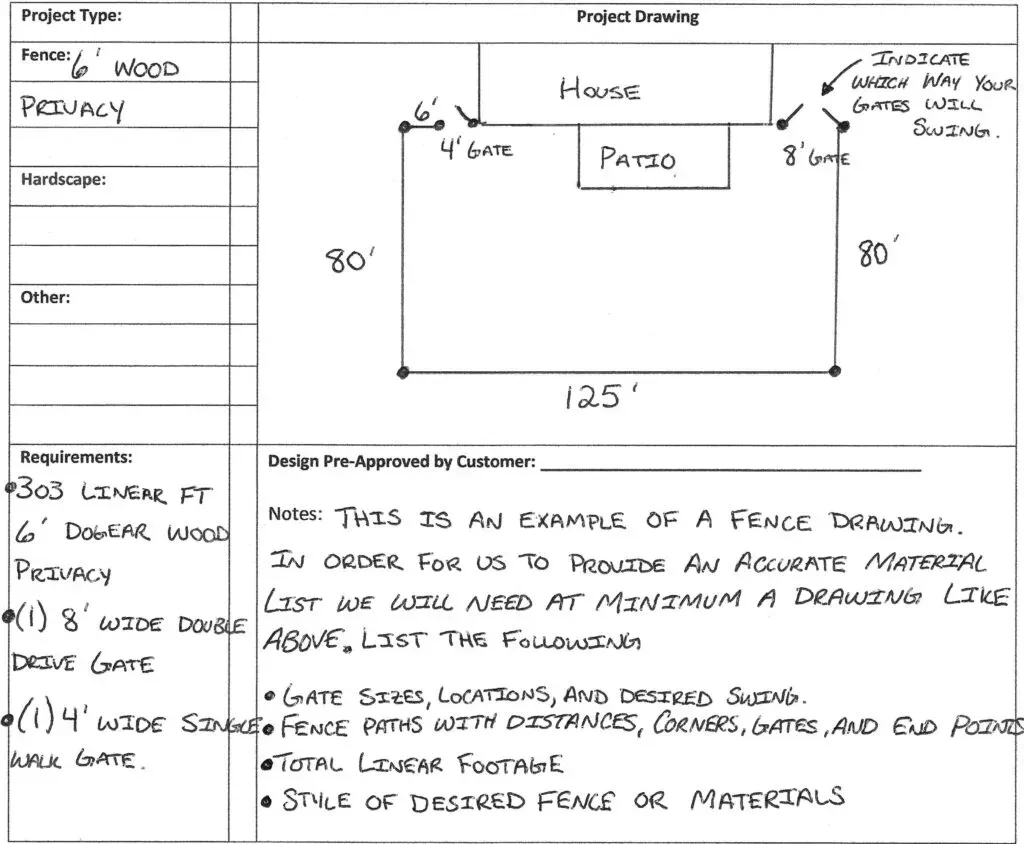 Project Type:
Project Drawing
Fence: 6' WOOD
PRIVACY
Hardscape:
Other:
HOUSE
PATIO
6'
4' GATE
8' GATE
INDICATE
WHICH WAY YOUR
GATES WILL
SWING.
80'
80'
125'
Requirements:
• 303 LINEAR FT
6' DOGEAR WOOD
PRIVACY
• (1) 8' WIDE DOUBLE
DRIVE GATE
• (1) 4' WIDE SINGLE
WALK GATE.
Design Pre-Approved by Customer:
Notes: THIS IS AN EXAMPLE OF A FENCE DRAWING.
IN ORDER FOR US TO PROVIDE AN ACCURATE MATERIAL
LIST WE WILL NEED AT MINIMUM A DRAWING LIKE
ABOVE. LIST THE FOLLOWING
• GATE SIZES, LOCATIONS, AND DESIRED SWING.
• FENCE PATHS WITH DISTANCES, CORNERS, GATES, AND END POINTS
• TOTAL LINEAR FOOTAGE
• STYLE OF DESIRED FENCE OR MATERIALS